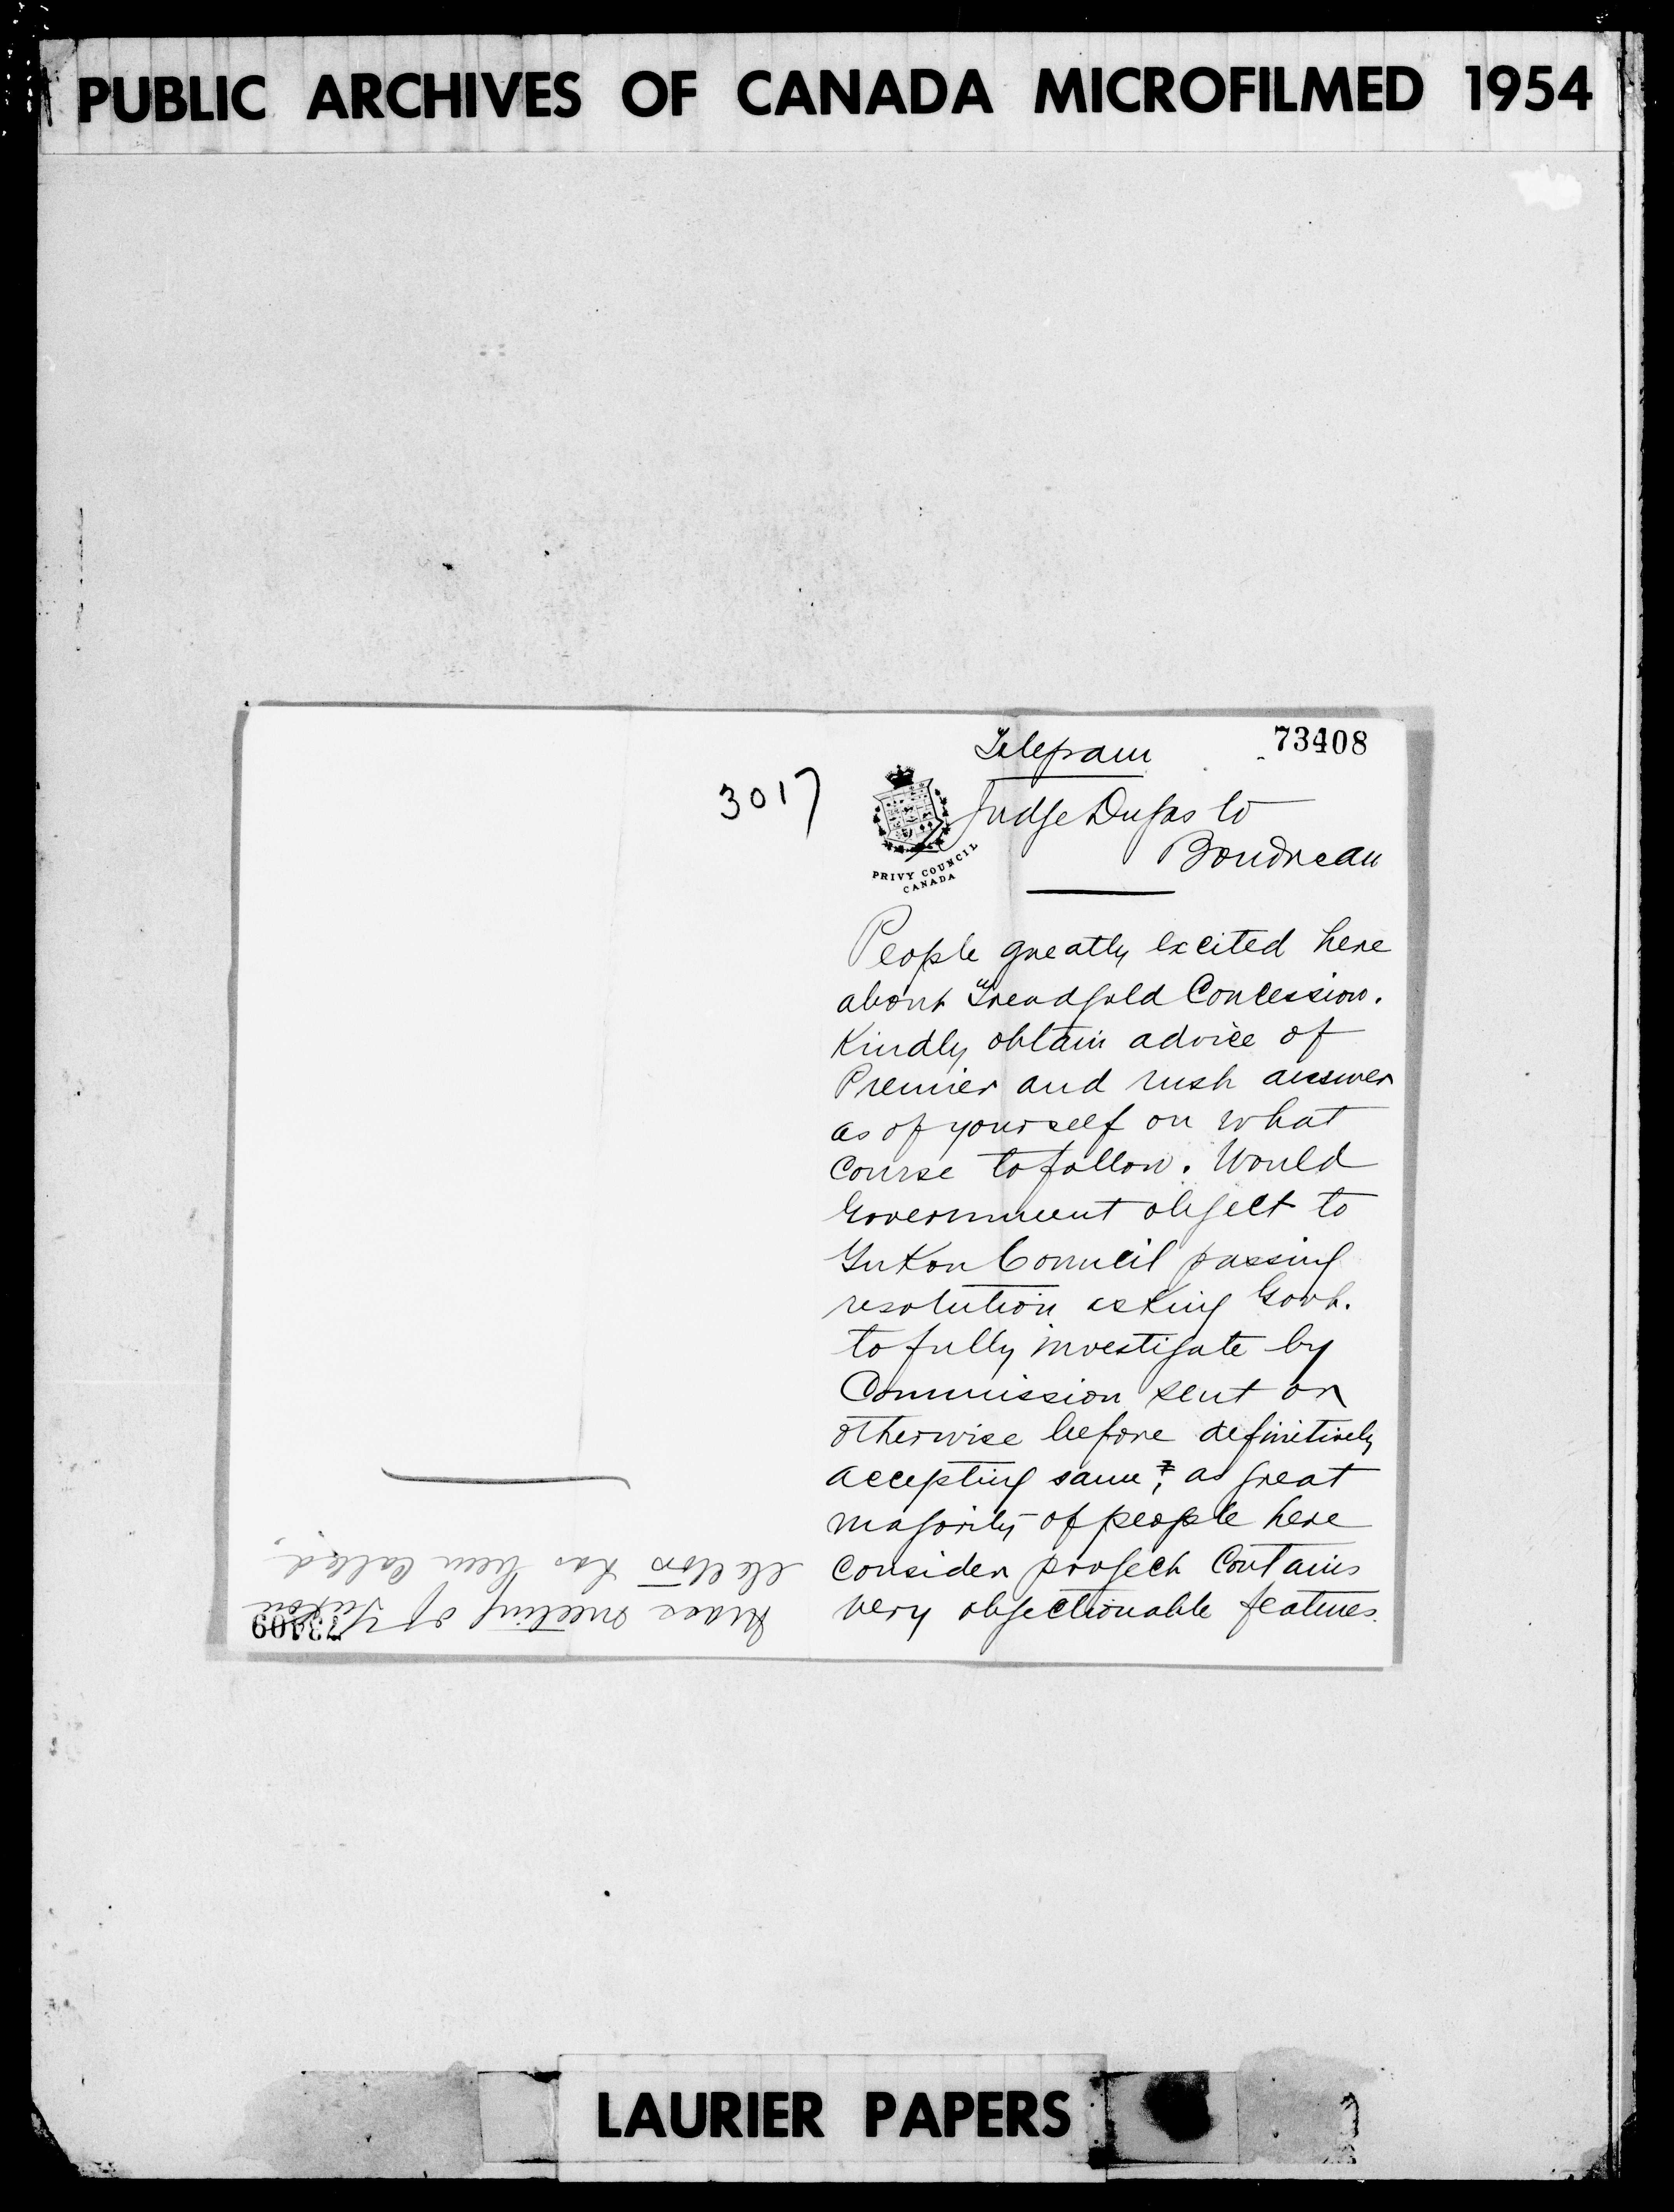 PUBLIC ARCHIVES OF CANADA MICROFILMED 1954
73408
Telegram
3017
Judge Dugas to
Boudreau
PRIVY COUNCIL
CANADA
People greatly excited here
about "Treadgold Concession.
Kindly obtain advice of
Premier and rush answer
as of yourself on what
course to follow. Would
Government object to
Yukon Council passing
resolution asking Govt.
to fully investigate by
Commission sent or
otherwise before definitively
accepting same; as great
majority of people here
consider project contains
very objectionable features.
73409
Mass meeting of Yukon
electors has been called.
LAURIER PAPERS